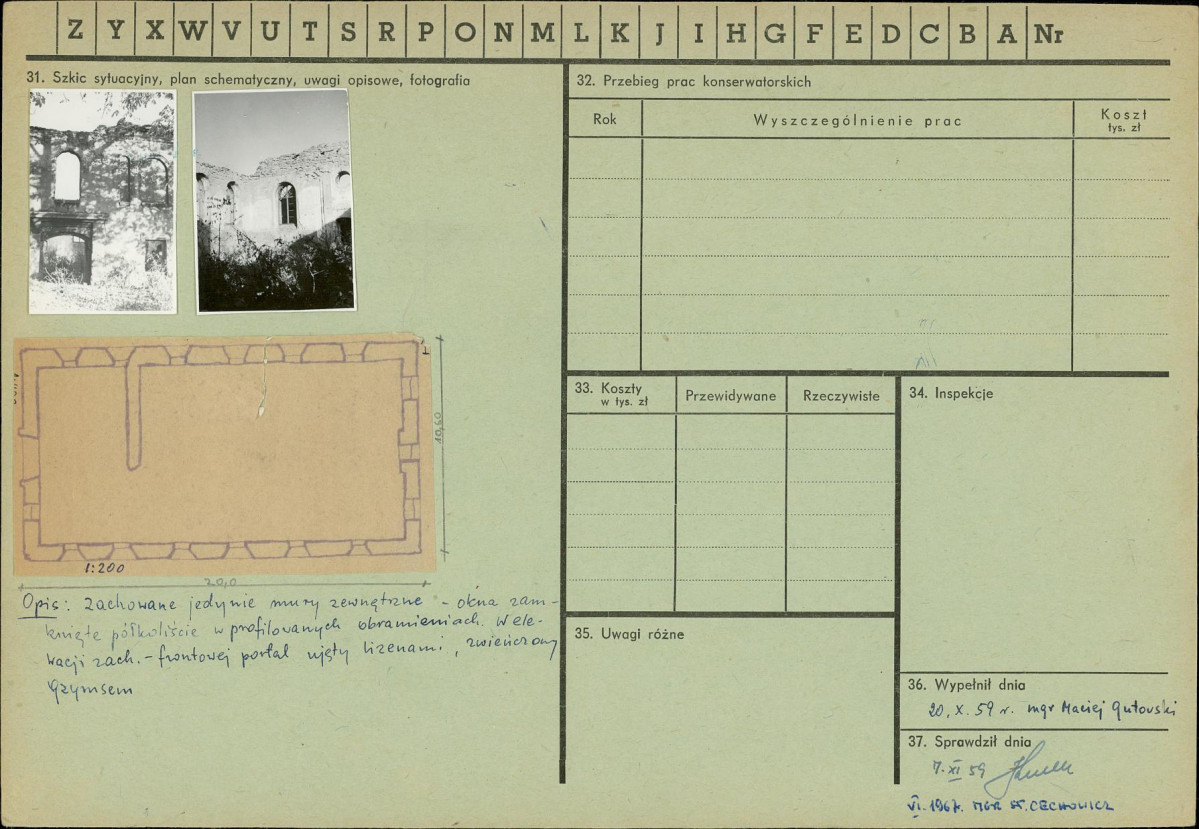 Z Y X W V U T S R P O N M L K J I H G F E D C B A Nr
31. Szkic sytuacyjny, plan schematyczny, uwagi opisowe, fotografia
10,60
1:200
20,0
Opis: zachowane jedynie mury zewnętrzne - okna zam-
knięte półkoliście w profilowanych obramieniach. W ele-
wacji zach. - frontowej portal ujęty lizenami, zwieńczony
gzymsem
32. Przebieg prac konserwatorskich
Rok Wyszczególnienie prac Koszt
tys. zł
33. Koszty
w tys. zł
Przewidywane Rzeczywiste
34. Inspekcje
35. Uwagi różne
36. Wypełnił dnia
20. X. 59 r. mgr Maciej Gutowski
37. Sprawdził dnia
7. XI 59
VI. 1967. MGR ST. CECHOWICZ